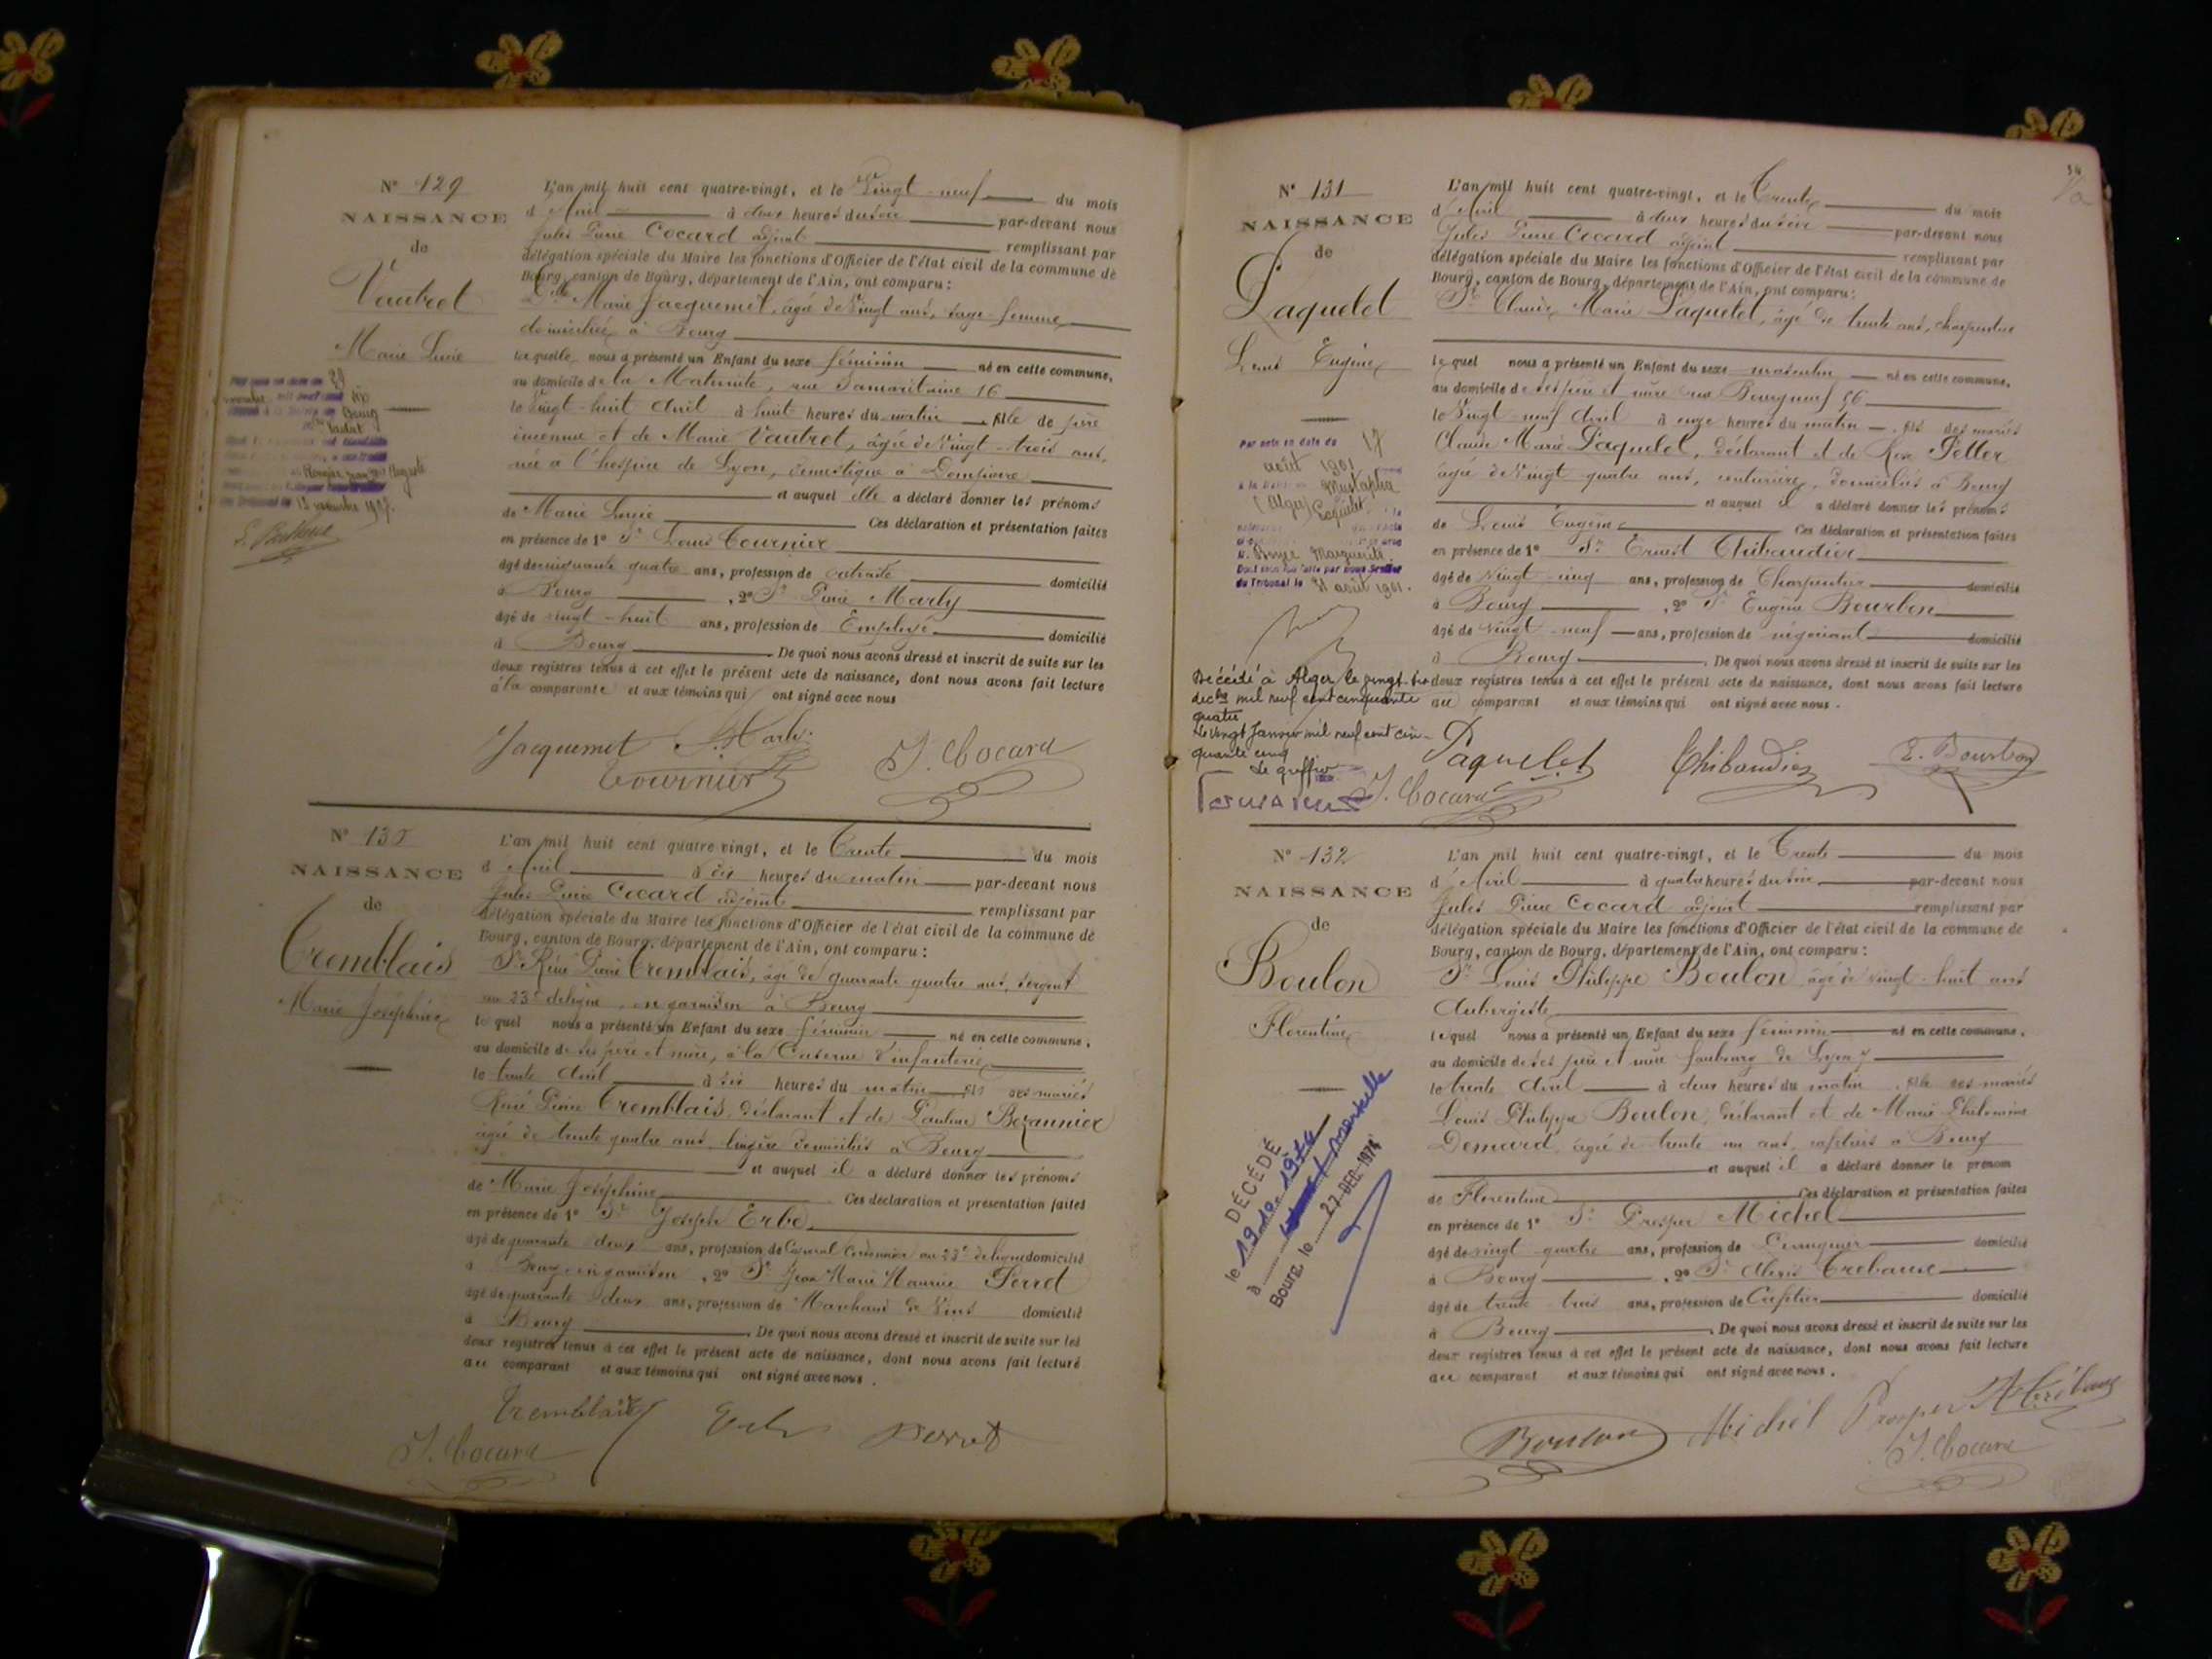 N° 129
NAISSANCE
de
Vautret
Marie Lucie
29
Bourg
Rongier Jean Auguste
L'an mil huit cent quatre-vingt, et le Vingt-neuf du mois
d'Avril à deux heures du soir par-devant nous
Jules Pierre Cocard adjoint remplissant par
délégation spéciale du Maire les fonctions d'Officier de l'état civil de la commune de
Bourg, canton de Bourg, département de l'Ain, ont comparu :
Dlle Marie Jacquemet, âgée de Vingt ans, sage-femme,
domiciliée à Bourg
laquelle nous a présenté un Enfant du sexe féminin né en cette commune,
au domicile de la Maternité, rue Samaritaine 16
le Vingt-huit Avril à huit heures du matin fille de père
inconnu et de Marie Vautret, âgée de Vingt-trois ans,
née à l'hospice de Lyon, domestique à Dompierre
et auquel elle a déclaré donner les prénoms
de Marie Lucie Ces déclaration et présentation faites
en présence de 1° Sr Louis Tournier
âgé de cinquante quatre ans, profession de retraité domicilié
à Bourg , 2° Sr Pierre Marly
âgé de vingt-huit ans, profession de Employé domicilié
à Bourg . De quoi nous avons dressé et inscrit de suite sur les
deux registres tenus à cet effet le présent acte de naissance, dont nous avons fait lecture
à la comparante et aux témoins qui ont signé avec nous
Jacquemet P. Marly
Tournier J. Cocard
N° 130
NAISSANCE
de
Tremblais
Marie Joséphine
L'an mil huit cent quatre-vingt, et le Trente du mois
d'Avril à dix heures du matin par-devant nous
Jules Pierre Cocard adjoint remplissant par
délégation spéciale du Maire les fonctions d'Officier de l'état civil de la commune de
Bourg, canton de Bourg, département de l'Ain, ont comparu :
Sr René Pierre Tremblais, âgé de quarante quatre ans, sergent
au 23e de ligne, en garnison à Bourg
lequel nous a présenté un Enfant du sexe féminin né en cette commune,
au domicile de ses père et mère, à la Caserne d'infanterie
le trente Avril à six heures du matin fille des mariés
René Pierre Tremblais, déclarant et de Pauline Bezannier
âgée de trente quatre ans, lingère domiciliés à Bourg
et auquel il a déclaré donner les prénoms
de Marie Joséphine Ces déclaration et présentation faites
en présence de 1° Sr Joseph Erbe
âgé de quarante deux ans, profession de Caporal Cordonnier au 23e de ligne domicilié
à Bourg en garnison , 2° Sr Jean Marie Maurice Perret
âgé de quarante deux ans, profession de Marchand de Vins domicilié
à Bourg . De quoi nous avons dressé et inscrit de suite sur les
deux registres tenus à cet effet le présent acte de naissance, dont nous avons fait lecture
au comparant et aux témoins qui ont signé avec nous .
Tremblais Erbe Perret
J. Cocard
54
N° 131
NAISSANCE
de
Paquelet
Louis Eugène
Par acte en date du 17
août 1901
à la Mairie de Mustapha
(Alger) Paquelet
Marguerite
du Tribunal le 31 août 1901.
Décédé à Alger le vingt-
decbre mil neuf cent cinquante
quatre
Le vingt Janvier mil neuf cent cin-
quante cinq
Le greffier
L'an mil huit cent quatre-vingt, et le Trente du mois
d'Avril à deux heures du soir par-devant nous
Jules Pierre Cocard adjoint remplissant par
délégation spéciale du Maire les fonctions d'Officier de l'état civil de la commune de
Bourg, canton de Bourg, département de l'Ain, ont comparu :
Sr Claude Marie Paquelet, âgé de trente ans, charpentier
lequel nous a présenté un Enfant du sexe masculin né en cette commune,
au domicile de ses père et mère rue Bourgneuf 56
le Vingt-neuf Avril à onze heures du matin fils des mariés
Claude Marie Paquelet, déclarant et de Rose Petter
âgée de Vingt quatre ans, couturière, domiciliés à Bourg
et auquel il a déclaré donner les prénoms
de Louis Eugène Ces déclaration et présentation faites
en présence de 1° Sr Ernest Thibaudier
âgé de Vingt-cinq ans, profession de Charpentier domicilié
à Bourg , 2° Sr Eugène Bourbon
âgé de Vingt-neuf ans, profession de négociant domicilié
à Bourg . De quoi nous avons dressé et inscrit de suite sur les
deux registres tenus à cet effet le présent acte de naissance, dont nous avons fait lecture
au comparant et aux témoins qui ont signé avec nous .
Paquelet Thibaudier E. Bourbon
J. Cocard
N° 132
NAISSANCE
de
Boulon
Florentine
DÉCÉDÉ
le 19.12.1974
à Marseille
Bourg, le 27 DEC. 1974
L'an mil huit cent quatre-vingt, et le Trente du mois
d'Avril à quatre heures du soir par-devant nous
Jules Pierre Cocard adjoint remplissant par
délégation spéciale du Maire les fonctions d'Officier de l'état civil de la commune de
Bourg, canton de Bourg, département de l'Ain, ont comparu :
Sr Louis Philippe Boulon âgé de vingt-huit ans
Aubergiste
lequel nous a présenté un Enfant du sexe féminin né en cette commune,
au domicile de ses père et mère faubourg de Lyon 7
le trente Avril à deux heures du matin fille des mariés
Louis Philippe Boulon, déclarant et de Marie Philomine
Demard âgée de trente un ans, à Bourg
et auquel il a déclaré donner le prénom
de Florentine Ces déclaration et présentation faites
en présence de 1° Sr Prosper Michel
âgé de vingt-quatre ans, profession de Perruquier domicilié
à Bourg , 2° Sr Alexis Trébause
âgé de trente trois ans, profession de Cafetier domicilié
à Bourg . De quoi nous avons dressé et inscrit de suite sur les
deux registres tenus à cet effet le présent acte de naissance, dont nous avons fait lecture
au comparant et aux témoins qui ont signé avec nous .
Boulon Michel Prosper
J. Cocard